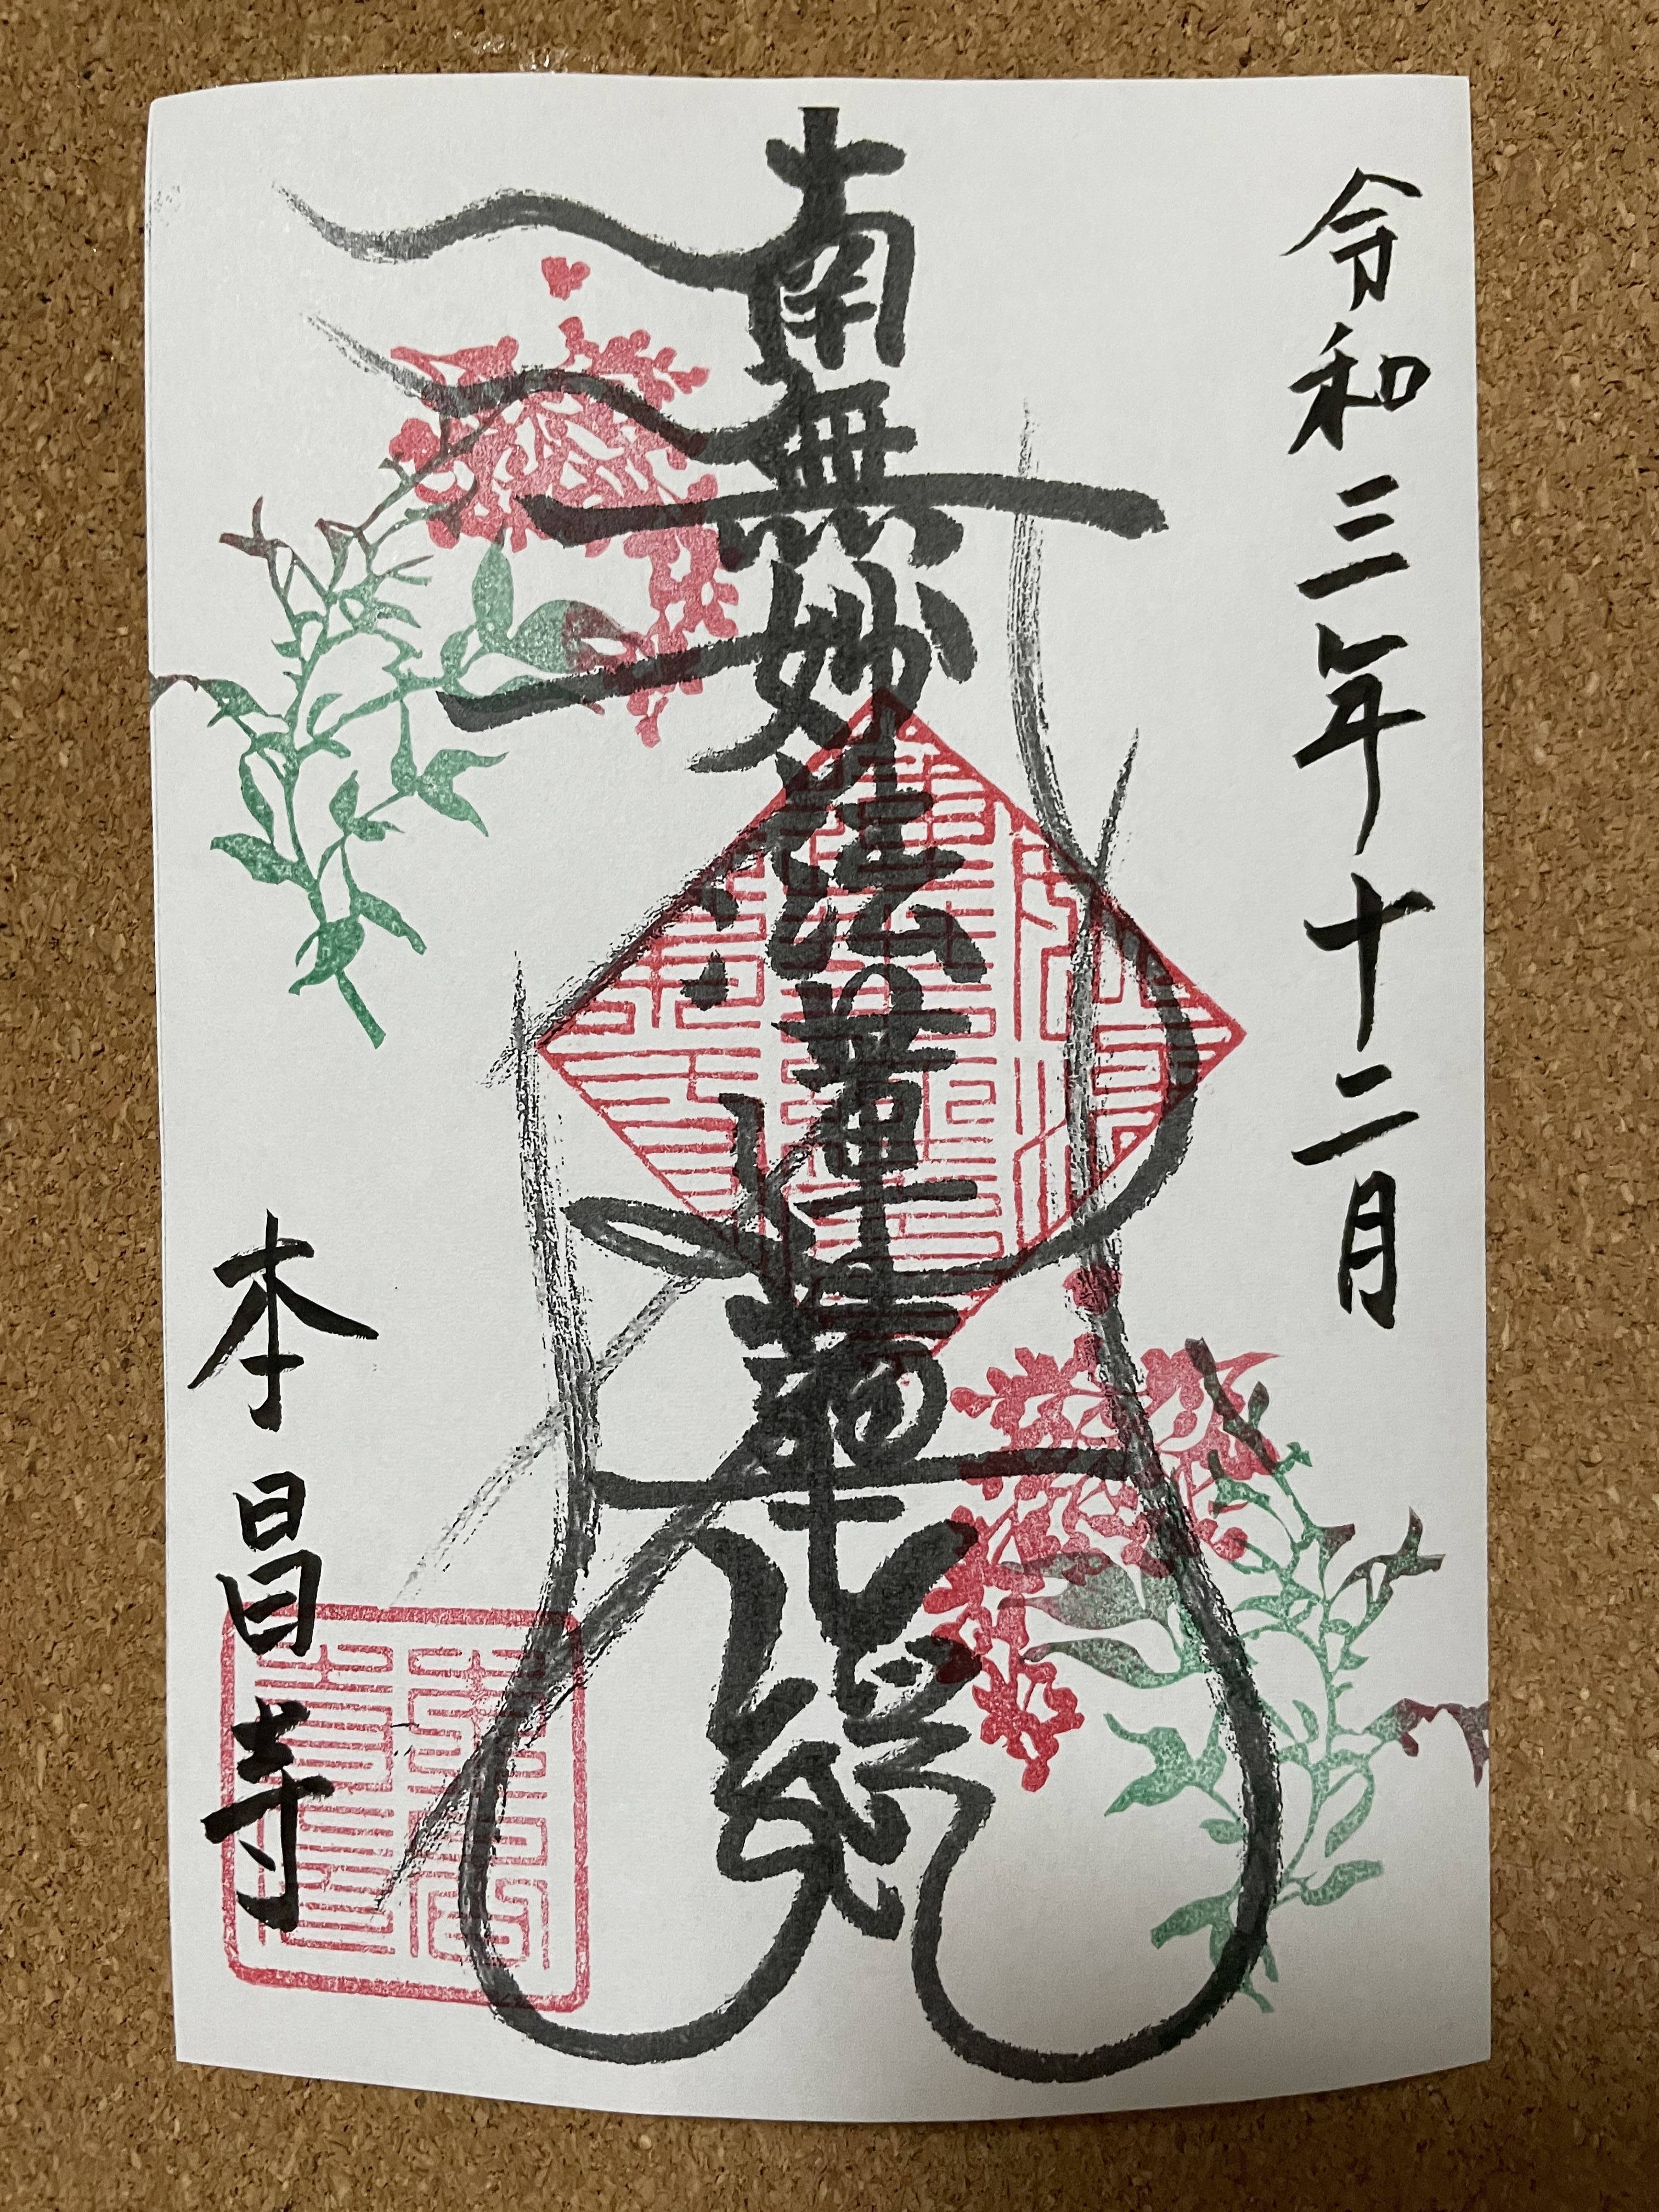 令和三年十二月
南無妙法蓮華経
本昌寺